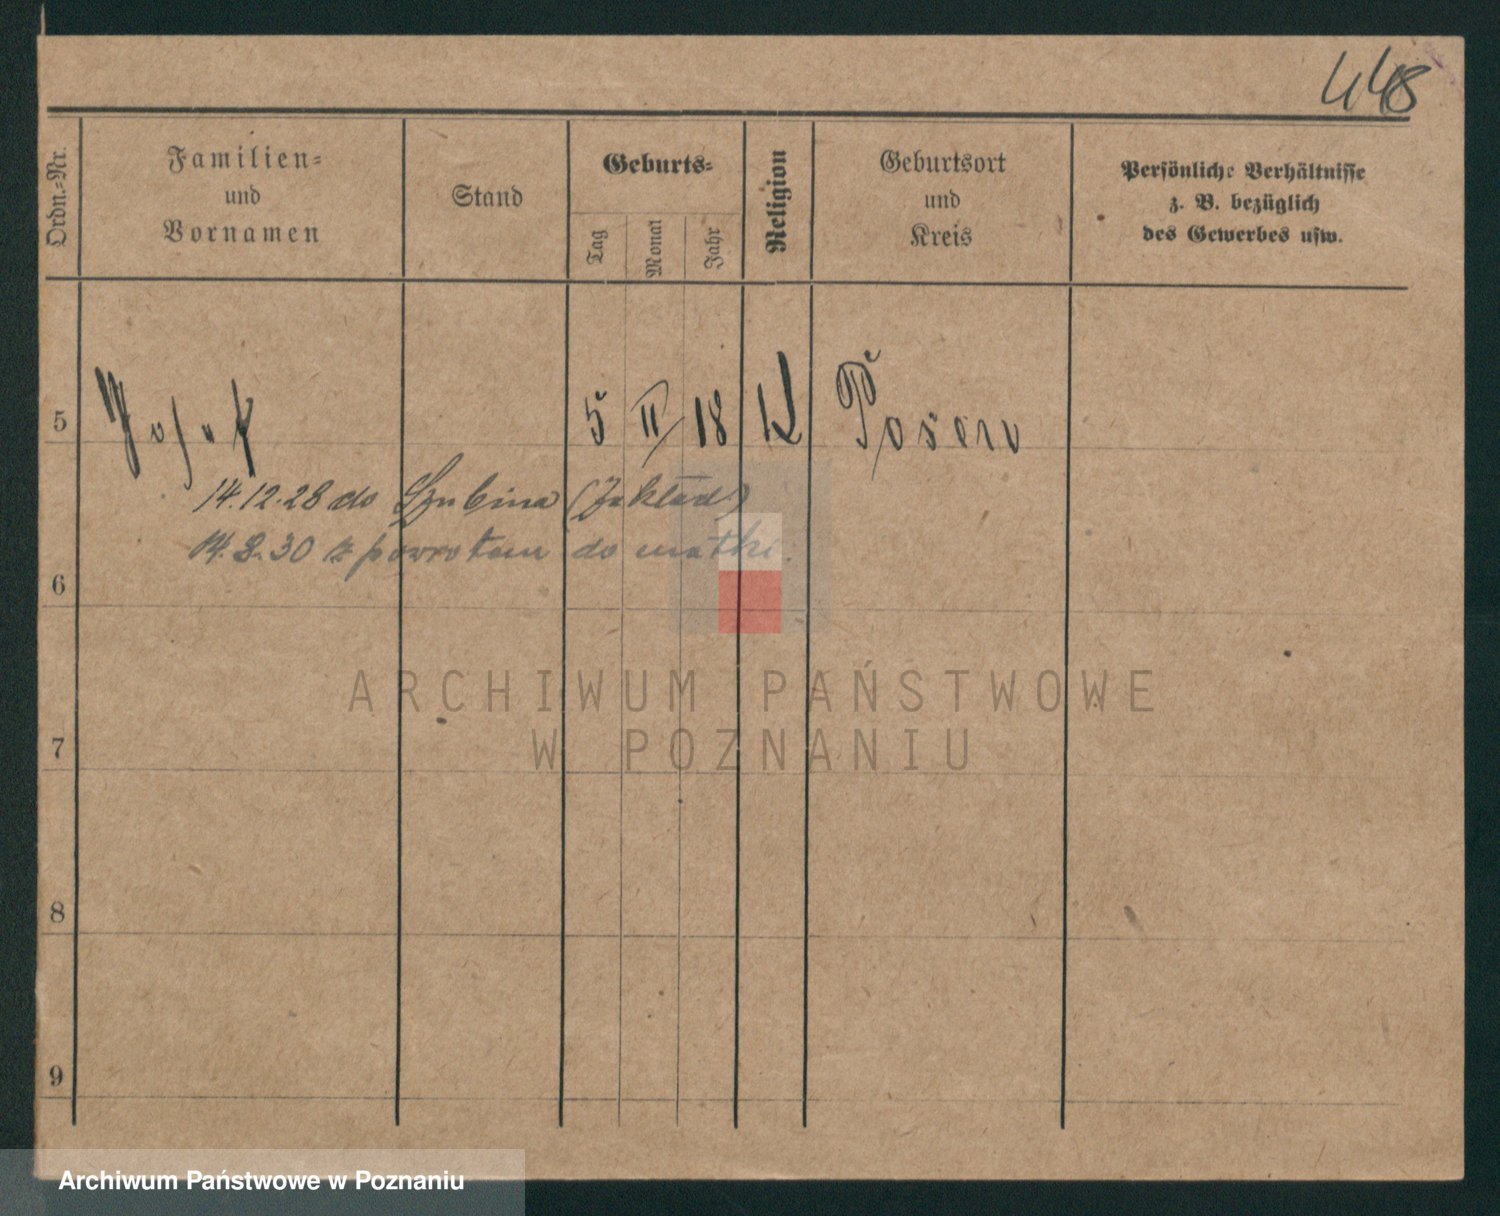 448
Ordn.=Nr.
Familien=
und
Vornamen
Stand
Geburts=
Tag
Monat
Jahr
Religion
Geburtsort
und
Kreis
Persönliche Verhältnisse
z. B. bezüglich
des Gewerbes usw.
5 5 II 18 K Posen
14.12.28 do Szubina (Zakład)
30 z powrotem do matki.
6
ARCHIWUM PAŃSTWOWE
W POZNANIU
7
8
9
Archiwum Państwowe w Poznaniu